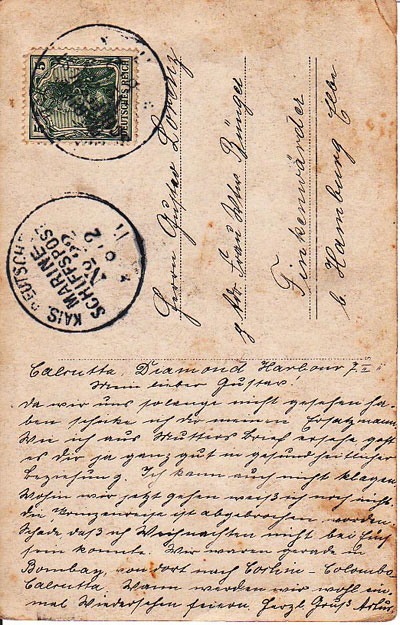 DEUTSCHES REICH
5
KAIS. DEUTSCHE
MARINE
SCHIFFSPOST
No 32
Herrn Gustav Lorenz
Frau Wwe Bünger
Finkenwärder
b. Hamburg Elbe
Calcutta, Diamond Harbour
Mein lieber Gustav!
da wir uns solange nicht gesehen ha-
ben schicke ich dir meinen Ersatzmann.
Wie ich aus Mutters Brief ersehe geht
es dir ja ganz gut in gesundheitlicher
Beziehung. Ich kann auch nicht klagen.
Wohin wir jetzt gehen weiß ich noch nicht.
die Prinzenreise ist abgebrochen worden.
Schade daß ich Weihnachten nicht bei Euch
sein konnte. Wir waren gerade in
Bombay, von dort nach Cochin - Colombo
Calcutta. Wann werden wir wohl ein-
mal Wiedersehen feiern. Herzl. Gruß Artur